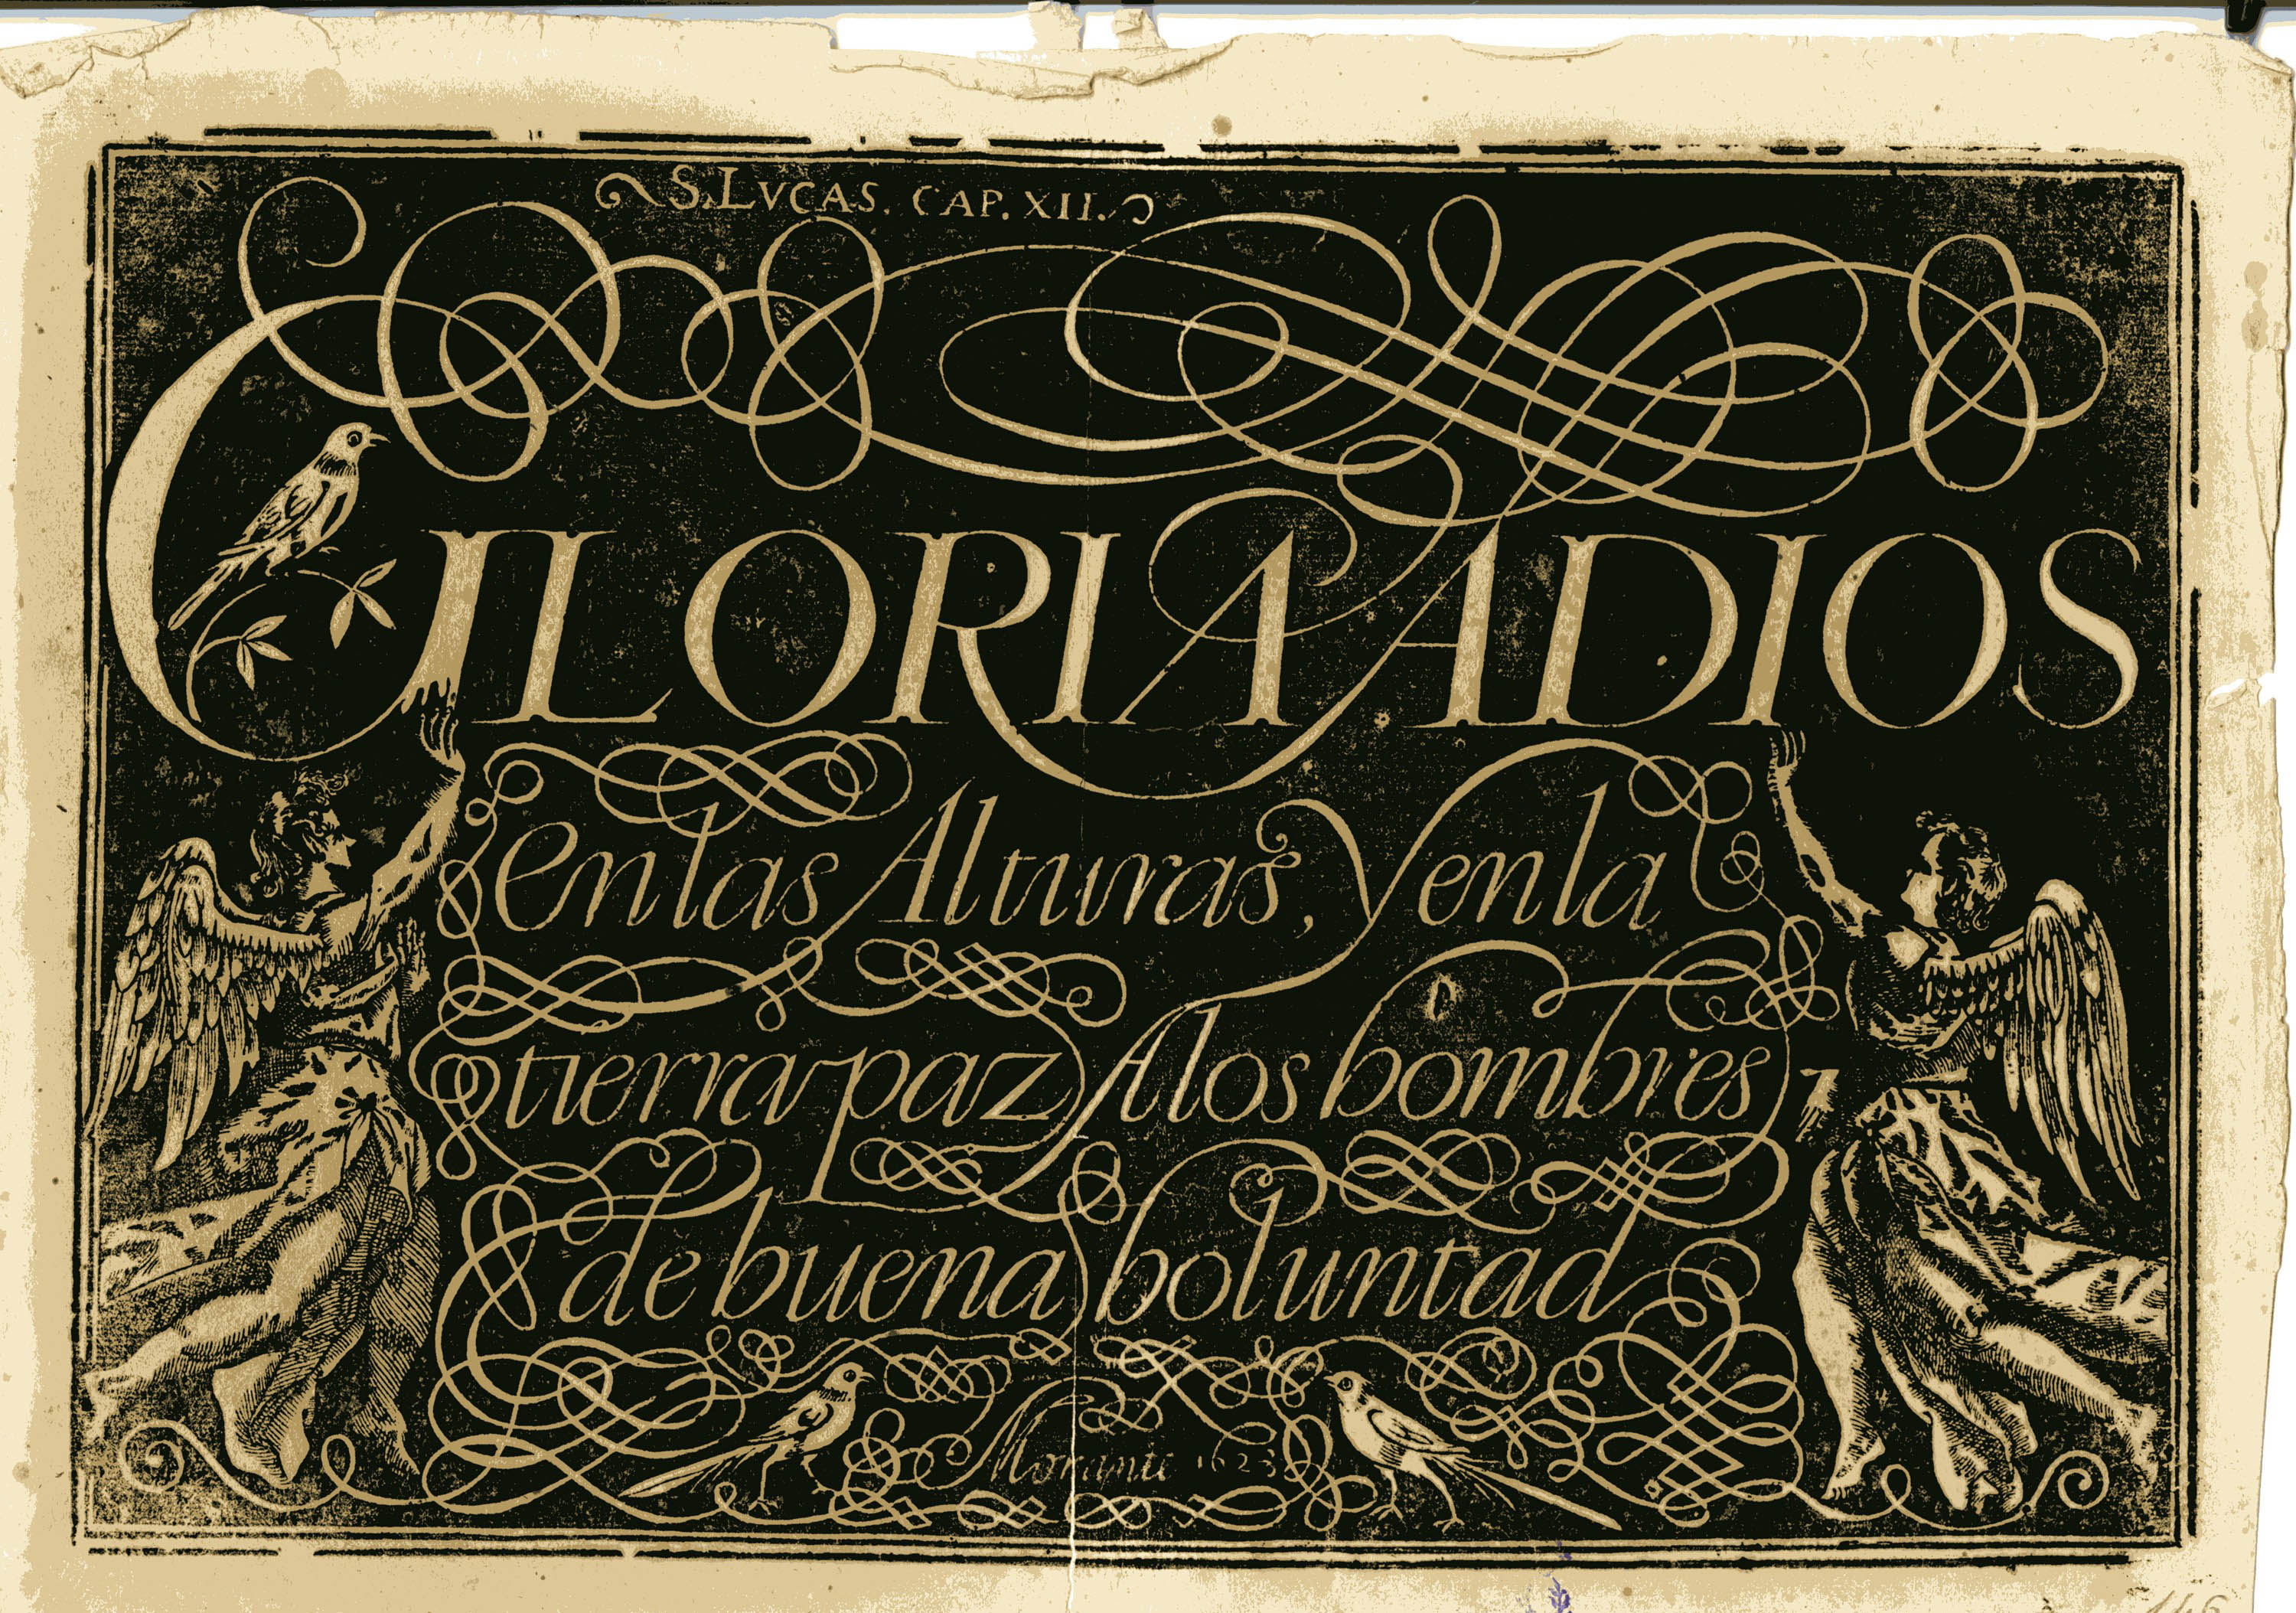 S. LVCAS. CAP. XII.
GLORIA ADIOS
en las Alturas, Y en la
tierra paz Alos hombres
de buena boluntad
Morante 1623
146